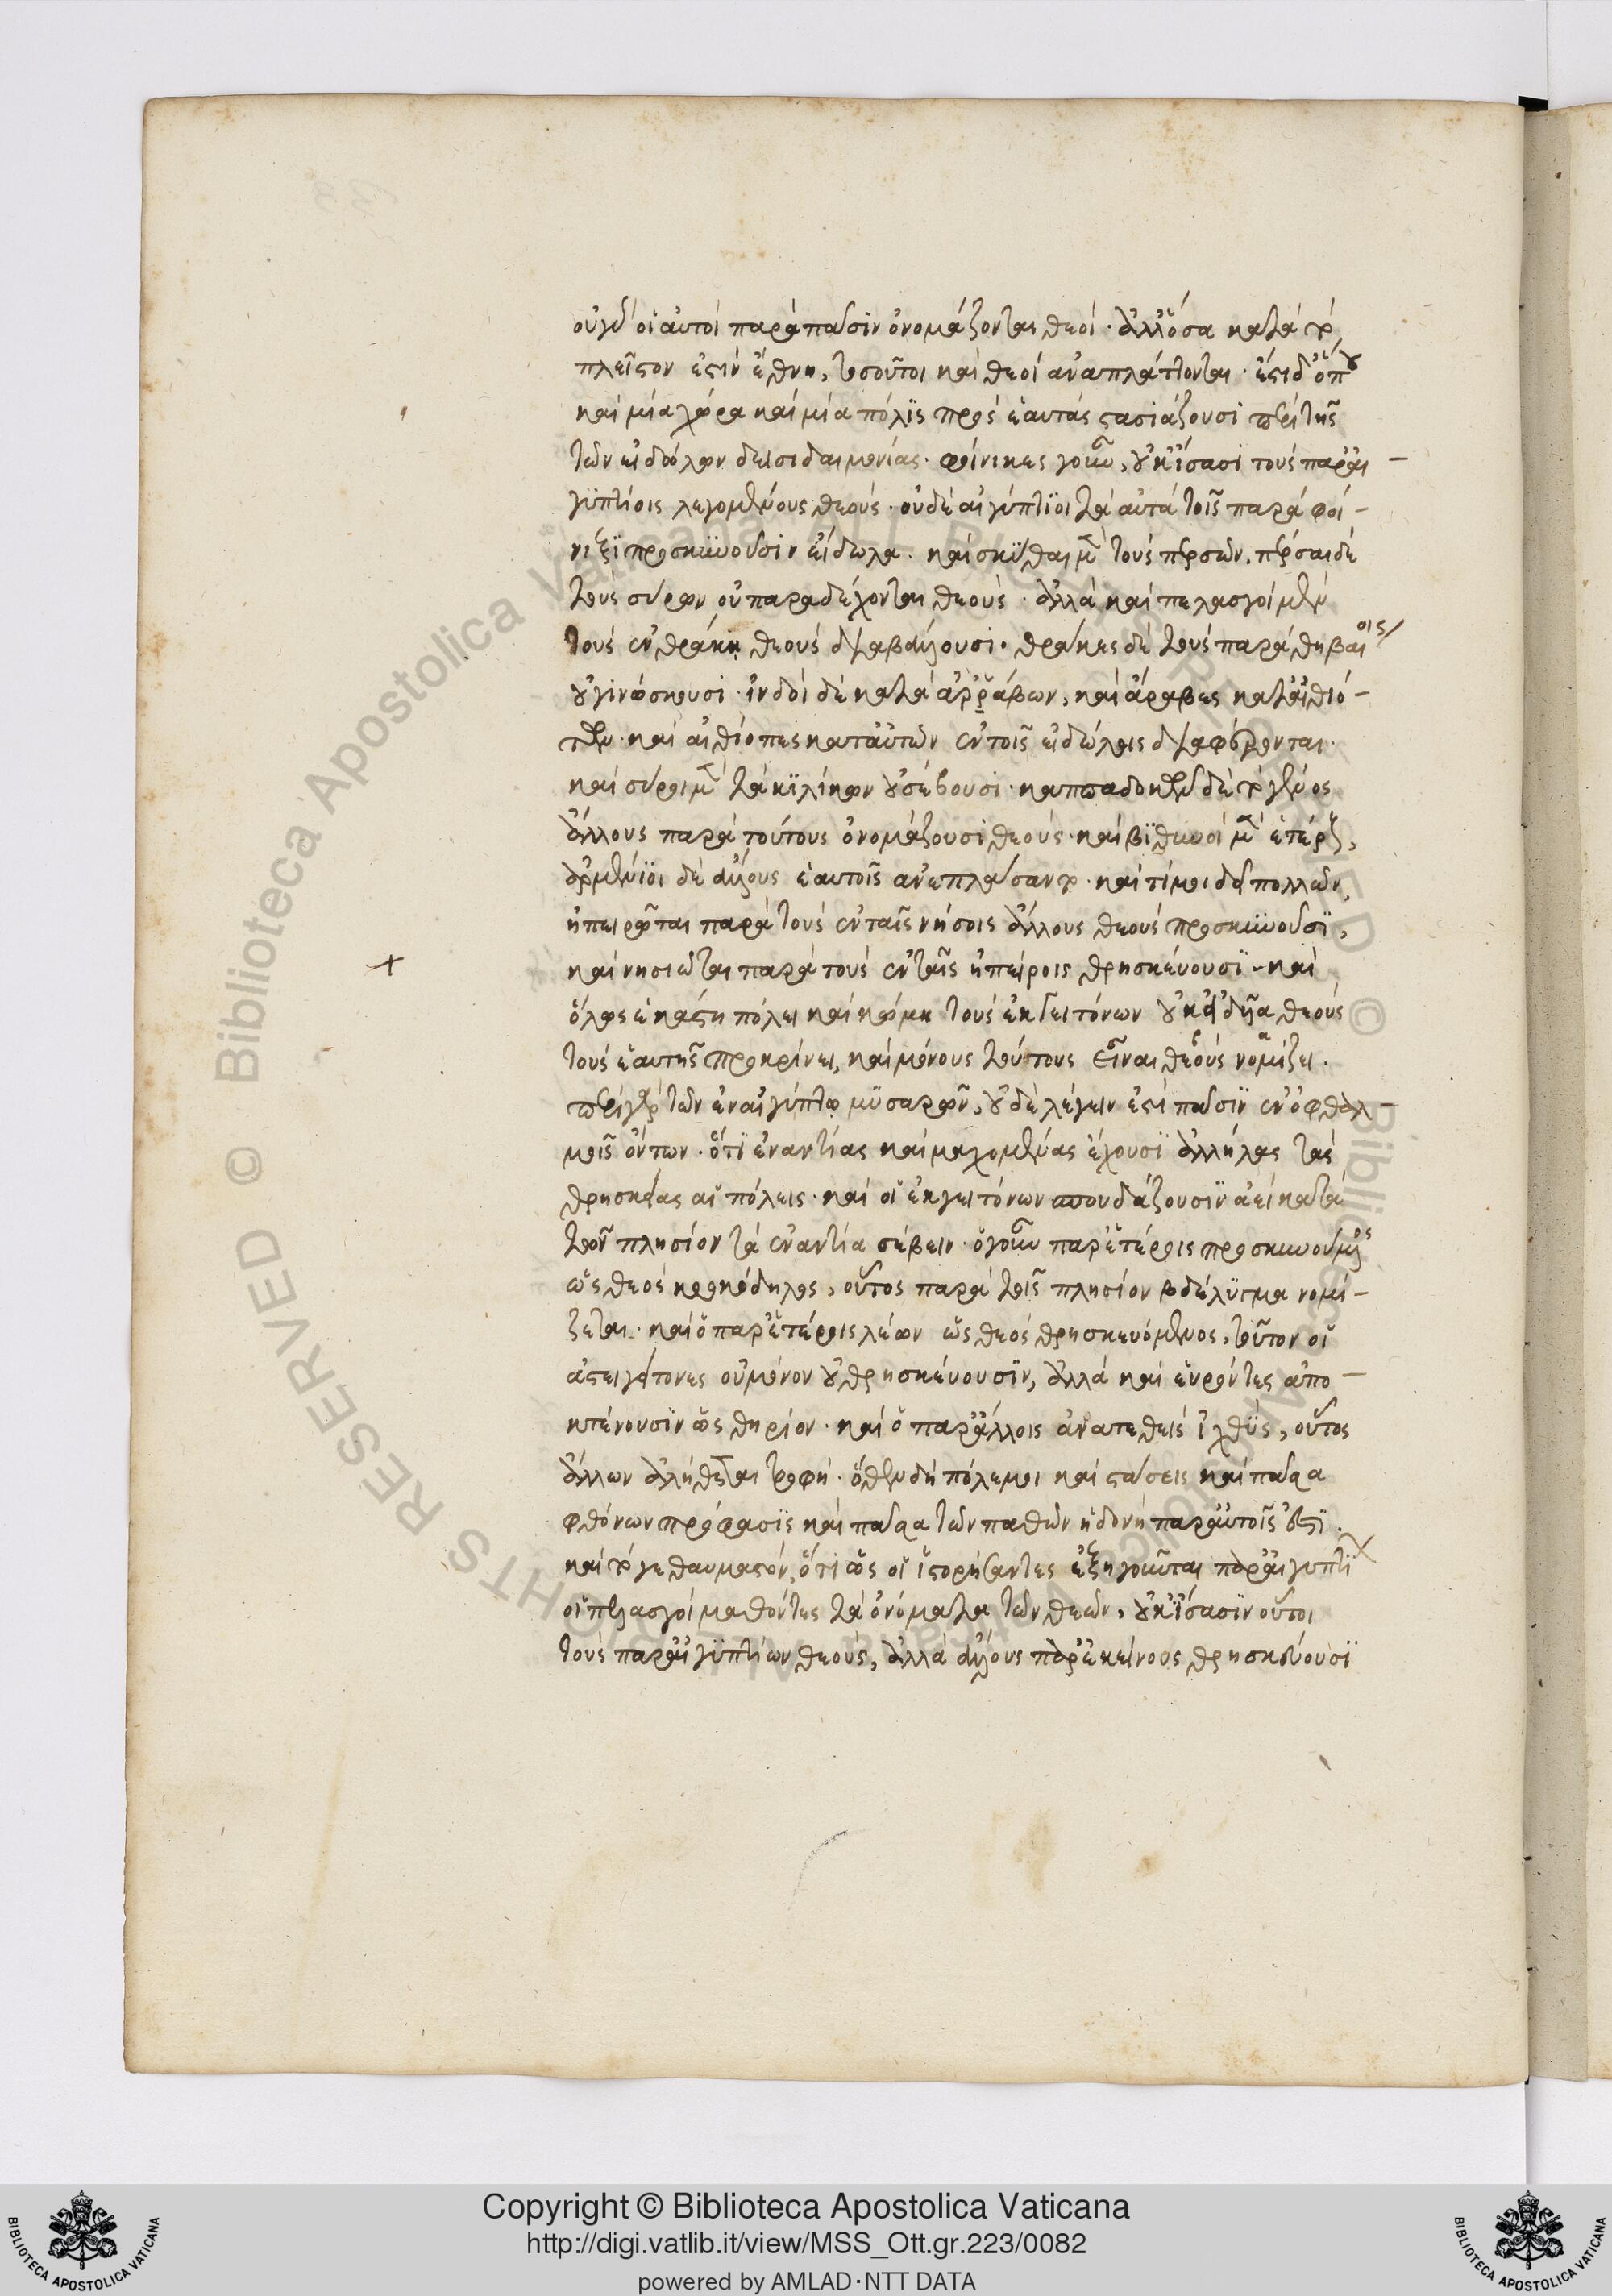 οὐ γὰρ οἱ αὐτοὶ παρὰ πᾶσιν ὀνομάζονται θεοί· ἀλλ' ὅσα κατὰ τὸ
πλεῖστον ἐστὶν ἔθνη, τοσοῦτοι καὶ θεοὶ ἀναπλάττονται· ἔστι δ' ὅπου
καὶ μία χώρα καὶ μία πόλϊς πρὸς ἑαυτὰς στασιάζουσι περὶ τῆς
τῶν εἰδώλων δεισιδαιμονίας· φοίνικες γοῦν, οὐκ ἴσασι τοὺς παρ' αι-
γϋπτίοις λεγομένους θεούς· οὐδὲ αἰγύπτϊοι τὰ αὐτὰ τοῖς παρὰ φοί-
νιξϊ προσκϋνοῦσιν εἴδωλα· καὶ σκϋθαι μὲν τοὺς περσῶν, πέρσαι δὲ
τοὺς σύρων οὐ παραδέχονται θεούς· ἀλλὰ καὶ πελασγοὶ μὲν
τοὺς ἐν θράκη θεοὺς διαβάλλουσι· θρᾶκες δὲ τοὺς παρὰ θηβαίοις
οὐ γινώσκουσι· ἰνδοὶ δὲ κατὰ ἀρράβων, καὶ ἄραβες κατ' αἰθιό-
πων· καὶ αἰθίοπες κατ' αὐτῶν ἐν τοῖς εἰδώλοις διαφέρονται·
καὶ σύροι μὲν τὰ κϊλίκων οὐ σέβουσι· καππαδοκῶν δὲ τὸ γένος
ἄλλους παρὰ τούτους ὀνομάζουσι θεούς· καὶ βϊθυνοὶ μὲν ἑτέρους,
ἀρμένϊοι δὲ ἄλλους ἑαυτοῖς ἀνεπλάσαντο· καὶ τί μοι δεῖ πολλῶν,
ἠπειρῶται παρὰ τοὺς ἐν ταῖς νήσοις ἄλλους θεοὺς προσκϋνοῦσϊ,
καὶ νησιῶται παρὰ τοὺς ἐν ταῖς ἠπείροις θρησκεύουσϊ· καὶ
ὅλως ἑκάστη πόλει καὶ κώμη τοὺς ἐκ γειτόνων οὐκ εἰδῆα θεοὺς
τοὺς ἑαυτῆς προκρίνει, καὶ μόνους τούτους εἶναι θεοὺς νομίζει·
περὶ γὰρ τῶν ἐν αἰγύπτω μϋσαρῶν, οὐδὲ λέγειν ἐστὶ πᾶσϊν ἐν ὀφθαλ-
μοῖς ὄντων· ὅτϊ ἐναντίας καὶ μαχομένας ἔχουσϊ ἀλλήλας τὰς
θρησκείας αἱ πόλεις· καὶ οἱ ἐκ γειτόνων σπουδάζουσϊν ἀεὶ κατὰ
τὸν πλησίον τὰ ἐναντία σέβειν· ὁ γοῦν παρ' ἑτέροις προσκυνούμενος
ὡς θεὸς κροκόδηλος, οὗτος παρὰ τοῖς πλησίον βδέλϋγμα νομί-
ζεται· καὶ ὁ παρ' ἑτέροις λέων ὡς θεὸς θρησκευόμενος, τοῦτον οἱ
ἀστειγείτονες οὐ μόνον οὐ θρησκεύουσϊν, ἀλλὰ καὶ εὑρόντες ἀπο-
κτένουσϊν ὡς θηρίον· καὶ ὁ παρ' ἄλλοις ἀνατεθεὶς ἰχθϋς, οὗτος
ἄλλων ἀλήθεται τροφή· ὅθεν δὴ πόλεμοι καὶ στάσεις καὶ πᾶσα
φθόνων πρόφασϊς καὶ πᾶσα τῶν παθῶν ἡδονὴ παρ' αὐτοῖς ἐστϊ.
καὶ τό γε θαυμαστόν, ὅτι ὡς οἱ ἱστορήσαντες ἐξηγοῦνται παρ' αἰγυπτί
οἱ πελασγοὶ μαθόντες τὰ ὀνόματα τῶν θεῶν, οὐκ ἴσασϊν οὗτοι
τοὺς παρ' αἰγϋπτίων θεούς, ἀλλὰ ἄλλους παρ' ἐκείνους θρησκεύουσϊ
Copyright © Biblioteca Apostolica Vaticana
http://digi.vatlib.it/view/MSS_Ott.gr.223/0082
powered by AMLAD·NTT DATA